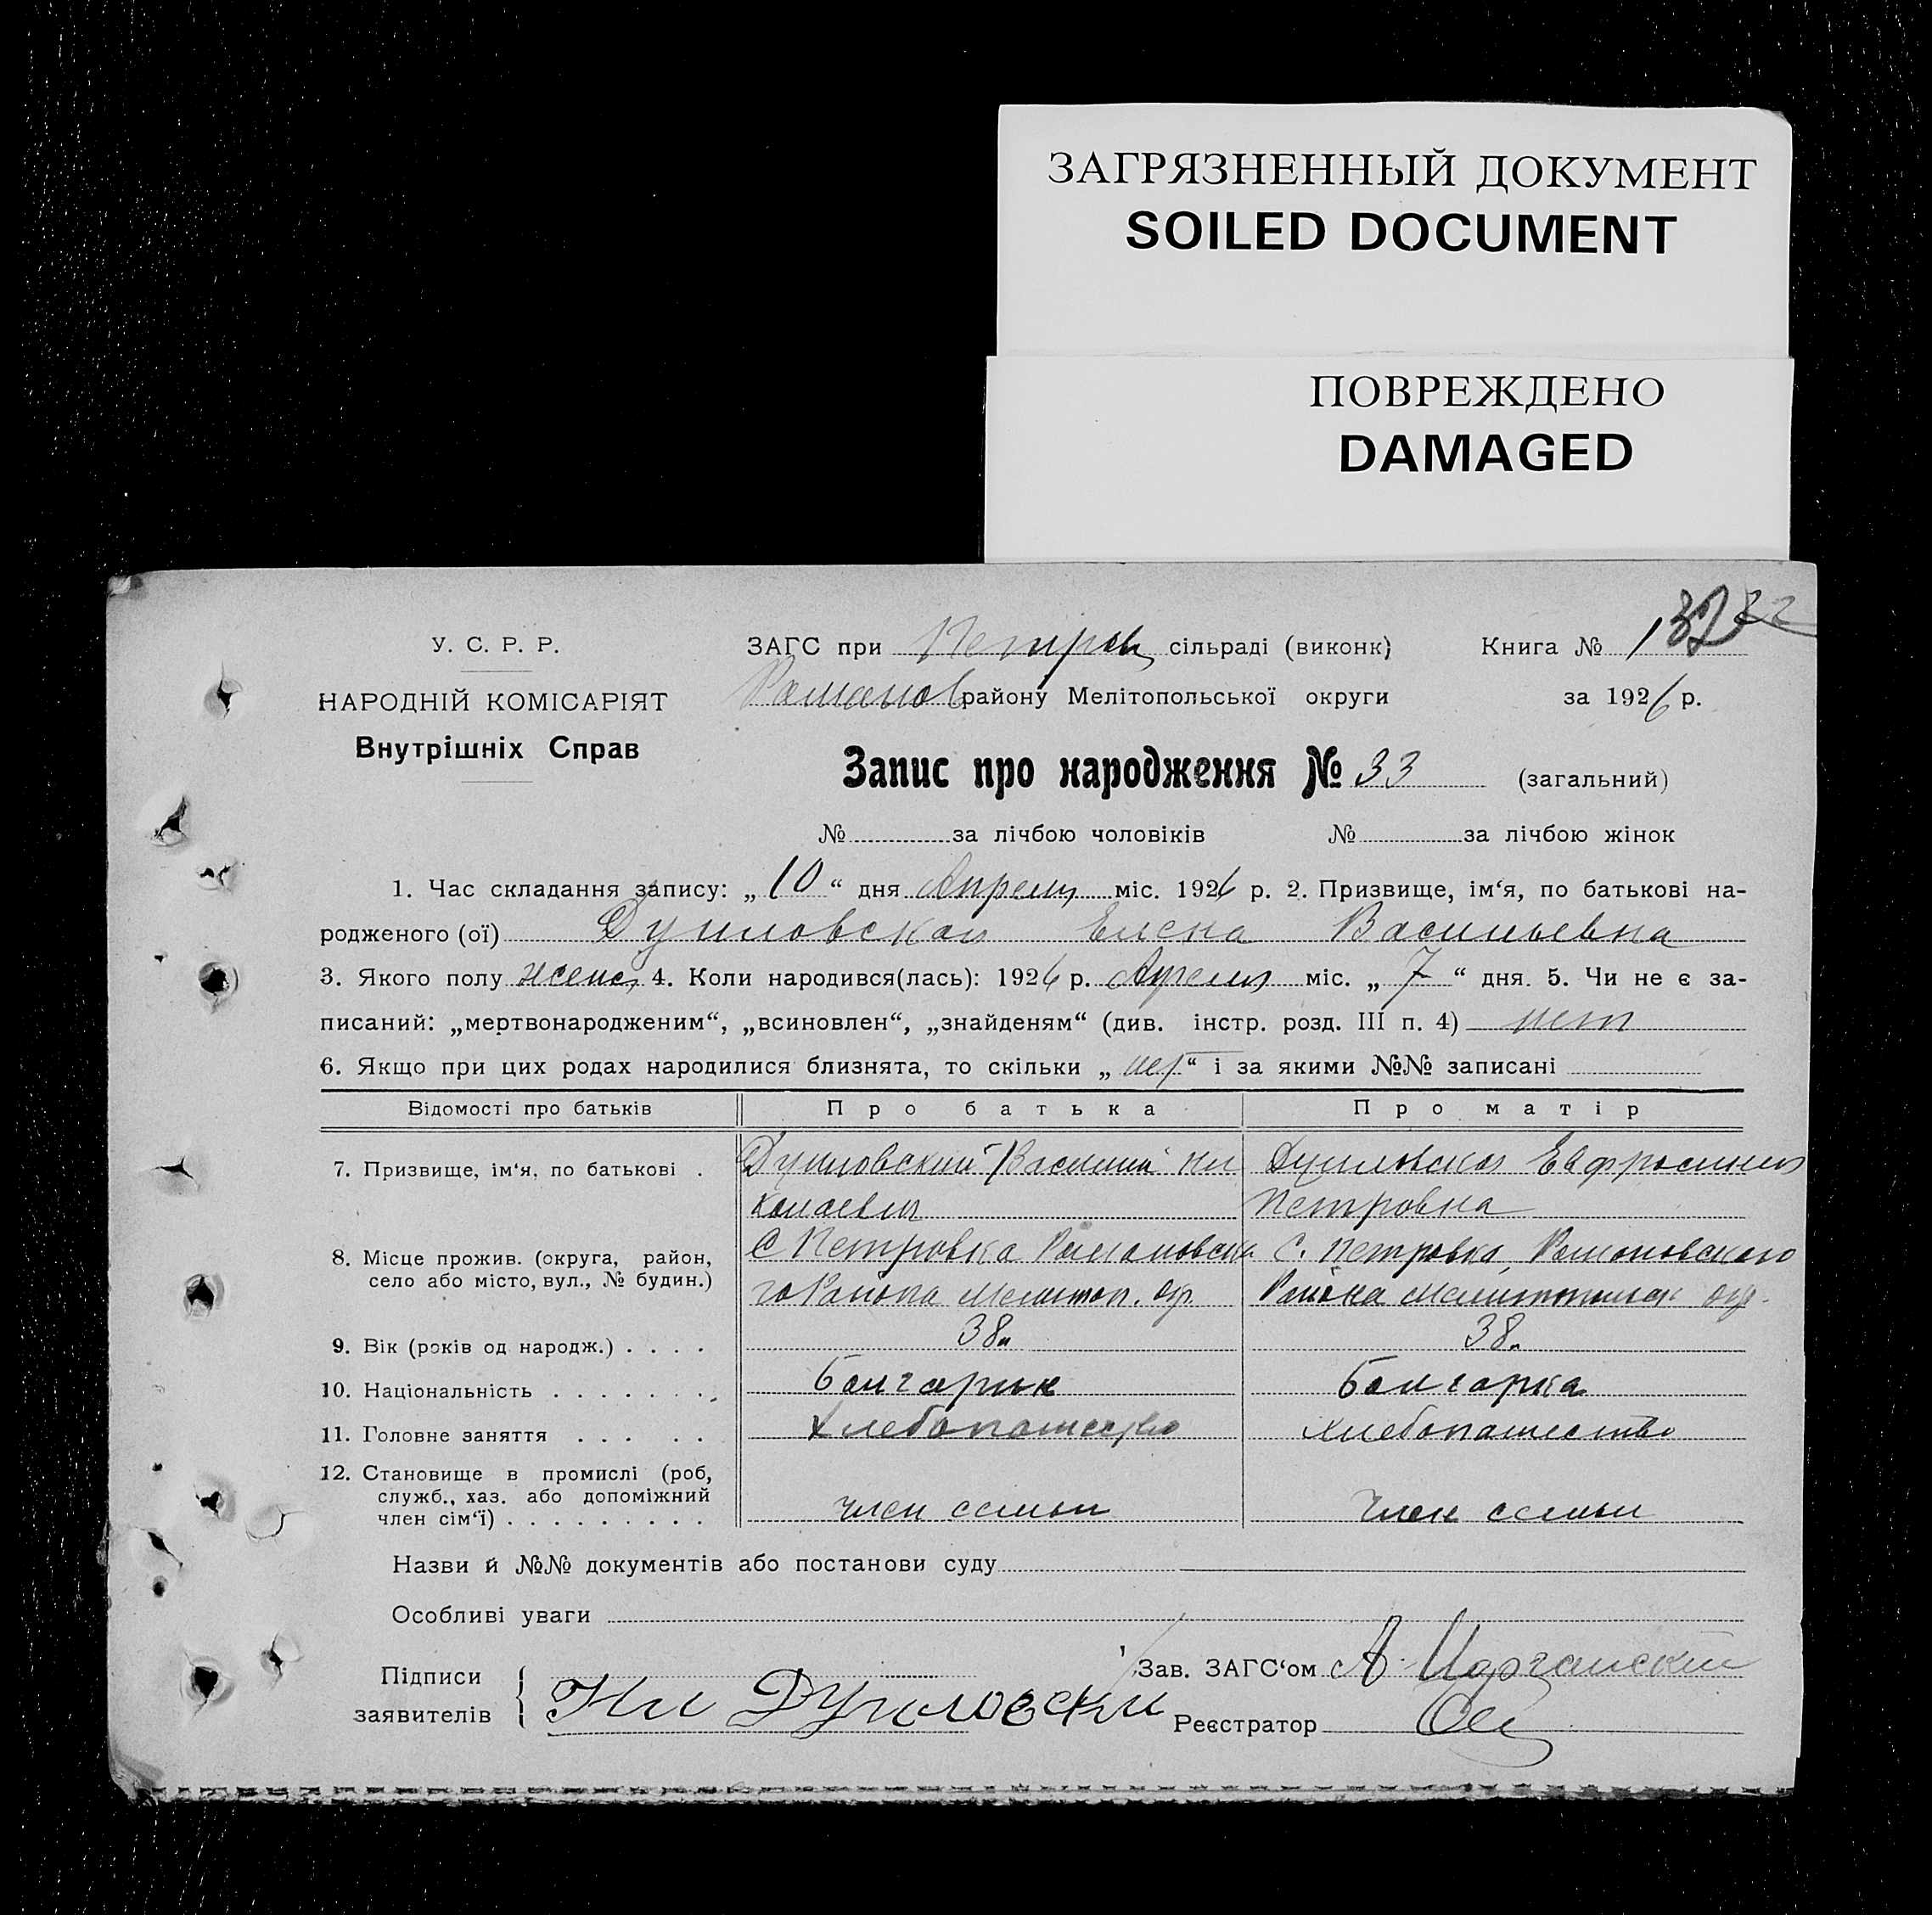 ЗАГРЯЗНЕННЫЙ ДОКУМЕНТ
SOILED DOCUMENT
ПОВРЕЖДЕНО
DAMAGED
У. С. Р. Р.
НАРОДНІЙ КОМІСАРІЯТ
Внутрішніх Справ
ЗАГС при Петров сільраді (виконк)
Романов району Мелітопольської округи
Книга №
за 1926 р.
Запис про народження № 33 (загальний)
№ за лічбою чоловіків № за лічбою жінок
1. Час складання запису: „10“ дня Апреля міс. 1926 р. 2. Призвище, ім‘я, по батькові на-
родженого (ої) Душловская Елена Васильевна
3. Якого полу женс, 4. Коли народився(лась): 1926 р. Апреля міс. „7“ дня. 5. Чи не є за-
писаний: „мертвонародженим“, „всиновлен“, „знайденям“ (див. інстр. розд. III п. 4) нет
6. Якщо при цих родах народилися близнята, то скільки „нет“ і за якими №№ записані
Відомості про батьків Про батька Про матір
7. Призвище, ім‘я, по батькові . Душловский Василий Ни Душловская Евфросиния
колаевич Петровна
8. Місце прожив. (округа, район, С Петровка Романовска С. Петровка, Романовского
село або місто, вул., № будин.) го Района Мелитоп. окр Района Мелитопольск окр.
9. Вік (років од народж.) . . . . 38 38
10. Національність . . . . . . . болгарин болгарка
11. Головне заняття . . . . . Хлебопашество хлебопашество
12. Становище в промислі (роб,
служб., хаз. або допоміжний
член сім‘ї) . . . . . . . . . член семьи член семьи
Назви й №№ документів або постанови суду
Особливі уваги
Підписи
заявителів
Зав. ЗАГС‘ом А.
Реєстратор